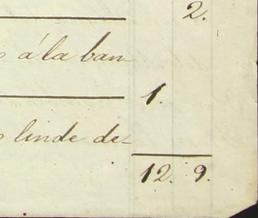 2.
à la ban
1.
linde de-
12. 9.